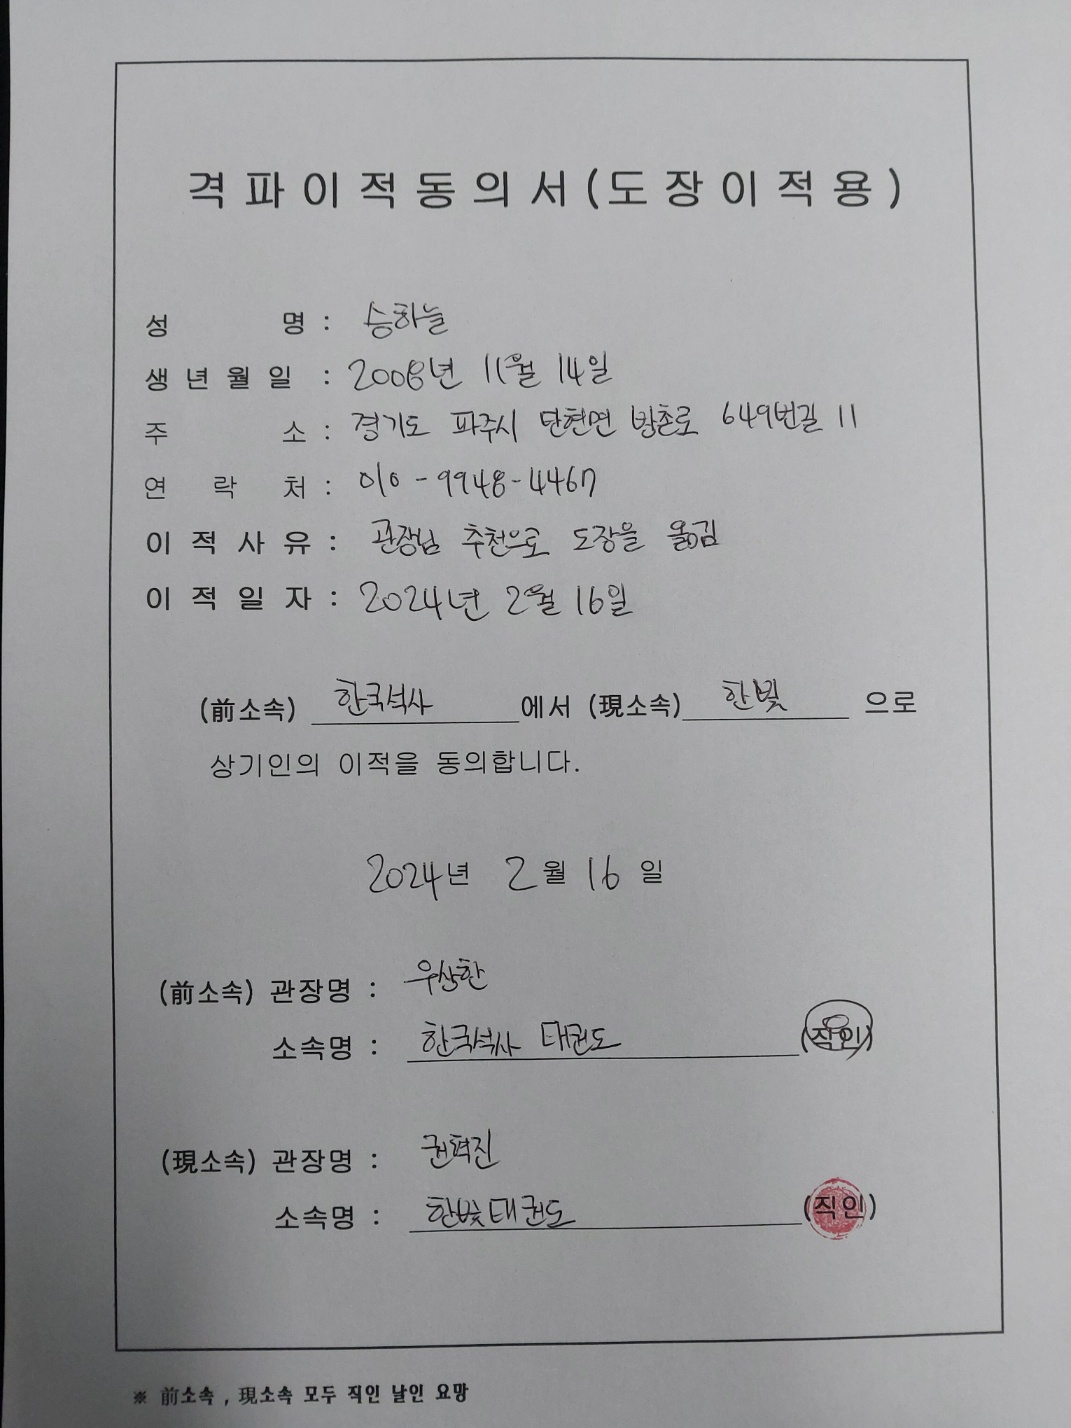 격파이적동의서(도장이적용)
성 명 : 승하늘
생년월일 : 2008년 11월 14일
주 소 : 경기도 파주시 탄현면 방촌로 649번길 11
연 락 처 : 010-9948-4467
이적사유 : 관장님 추천으로 도장을 옮김
이적일자 : 2024년 2월 16일
(前소속) 한국석사 에서 (現소속) 한빛 으로
상기인의 이적을 동의합니다.
2024년 2월 16일
(前소속) 관장명 : 우상한
소속명 : 한국석사 태권도 (직인)
(現소속) 관장명 : 권혁진
소속명 : 한빛태권도 (직인)
※ 前소속 , 現소속 모두 직인 날인 요망